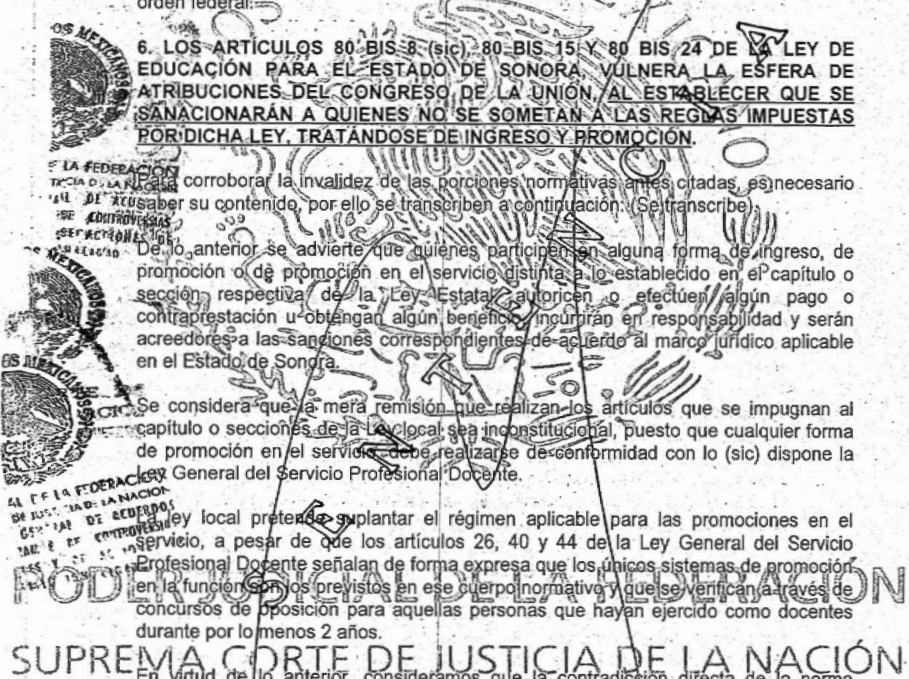 orden federal.
6. LOS ARTÍCULOS 80 BIS 8 (sic), 80 BIS 15 Y 80 BIS 24 DE LA LEY DE
EDUCACIÓN PARA EL ESTADO DE SONORA, VULNERA LA ESFERA DE
ATRIBUCIONES DEL CONGRESO DE LA UNIÓN, AL ESTABLECER QUE SE
SANACIONARÁN A QUIENES NO SE SOMETAN A LAS REGLAS IMPUESTAS
POR DICHA LEY, TRATÁNDOSE DE INGRESO Y PROMOCIÓN.
Para corroborar la invalidez de las porciones normativas antes citadas, es necesario
saber su contenido, por ello se transcriben a continuación. (Se transcribe).
De lo anterior se advierte que quienes participen en alguna forma de ingreso, de
promoción o de promoción en el servicio distinta a lo establecido en el capítulo o
sección respectiva de la Ley Estatal, autoricen o efectúen algún pago o
contraprestación u obtengan algún beneficio, incurrirán en responsabilidad y serán
acreedores a las sanciones correspondientes de acuerdo al marco jurídico aplicable
en el Estado de Sonora.
Se considera que la mera remisión que realizan los artículos que se impugnan al
capítulo o secciones de la Ley local sea inconstitucional, puesto que cualquier forma
de promoción en el servicio, debe realizarse de conformidad con lo (sic) dispone la
Ley General del Servicio Profesional Docente.
ley local pretende suplantar el régimen aplicable para las promociones en el
servicio, a pesar de que los artículos 26, 40 y 44 de la Ley General del Servicio
Profesional Docente señalan de forma expresa que los únicos sistemas de promoción
en la función son los previstos en ese cuerpo normativo y que se verifican a través de
concursos de oposición para aquellas personas que hayan ejercido como docentes
durante por lo menos 2 años.
En virtud de lo anterior, consideramos que la contradicción directa de la norma
PODER JUDICIAL DE LA FEDERACIÓN
SUPREMA CORTE DE JUSTICIA DE LA NACIÓN